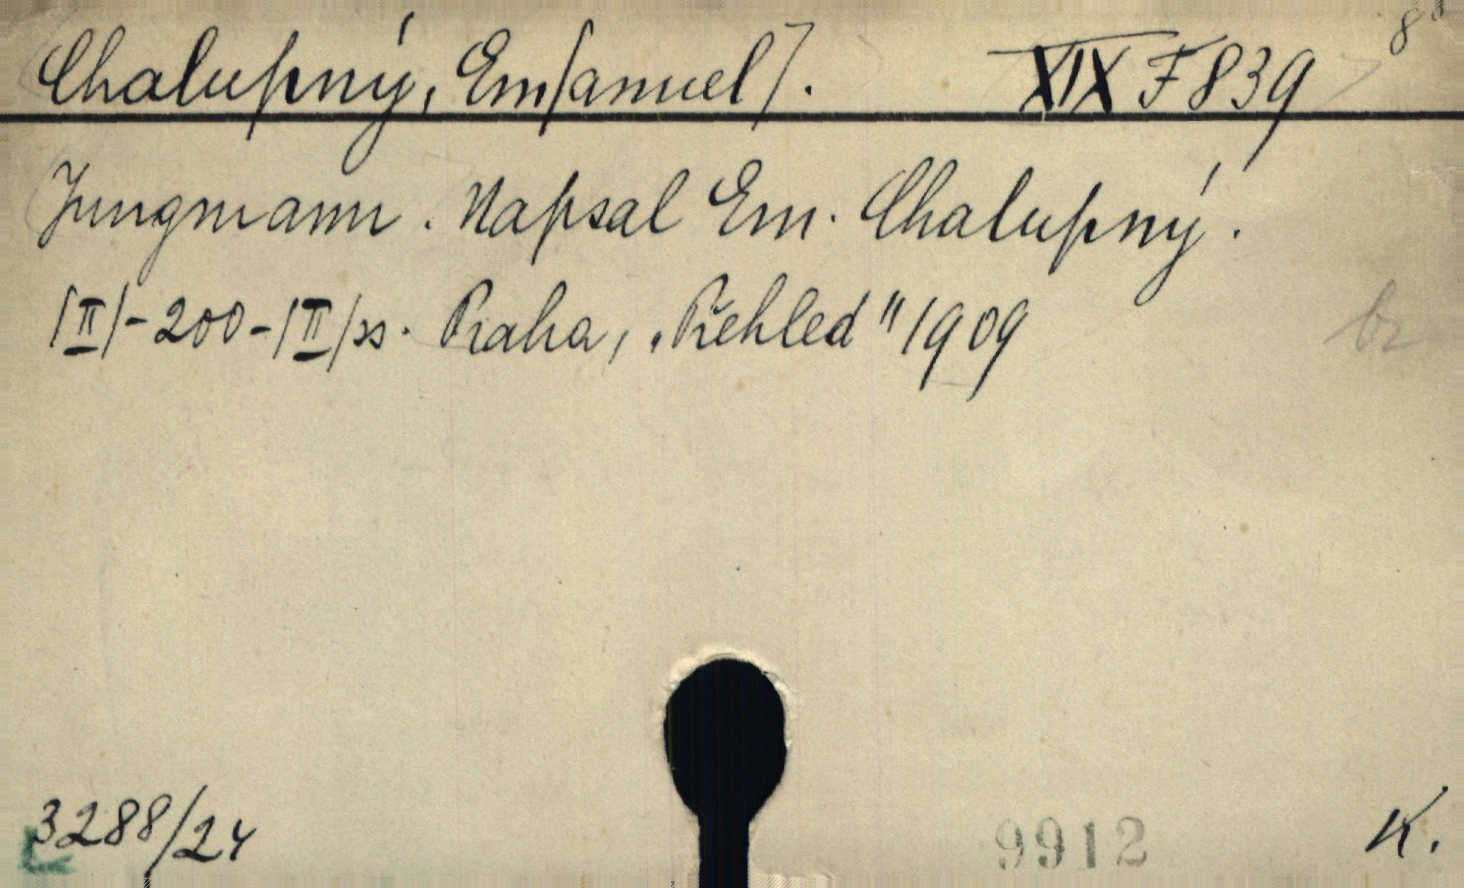 Chalupný, Em[anuel]. XIX F 839 8°
Jungmann. Napsal Em. Chalupný.
[II]-200-[II] ss. Praha, „Přehled" 1909
br
3288/24 9912 K.